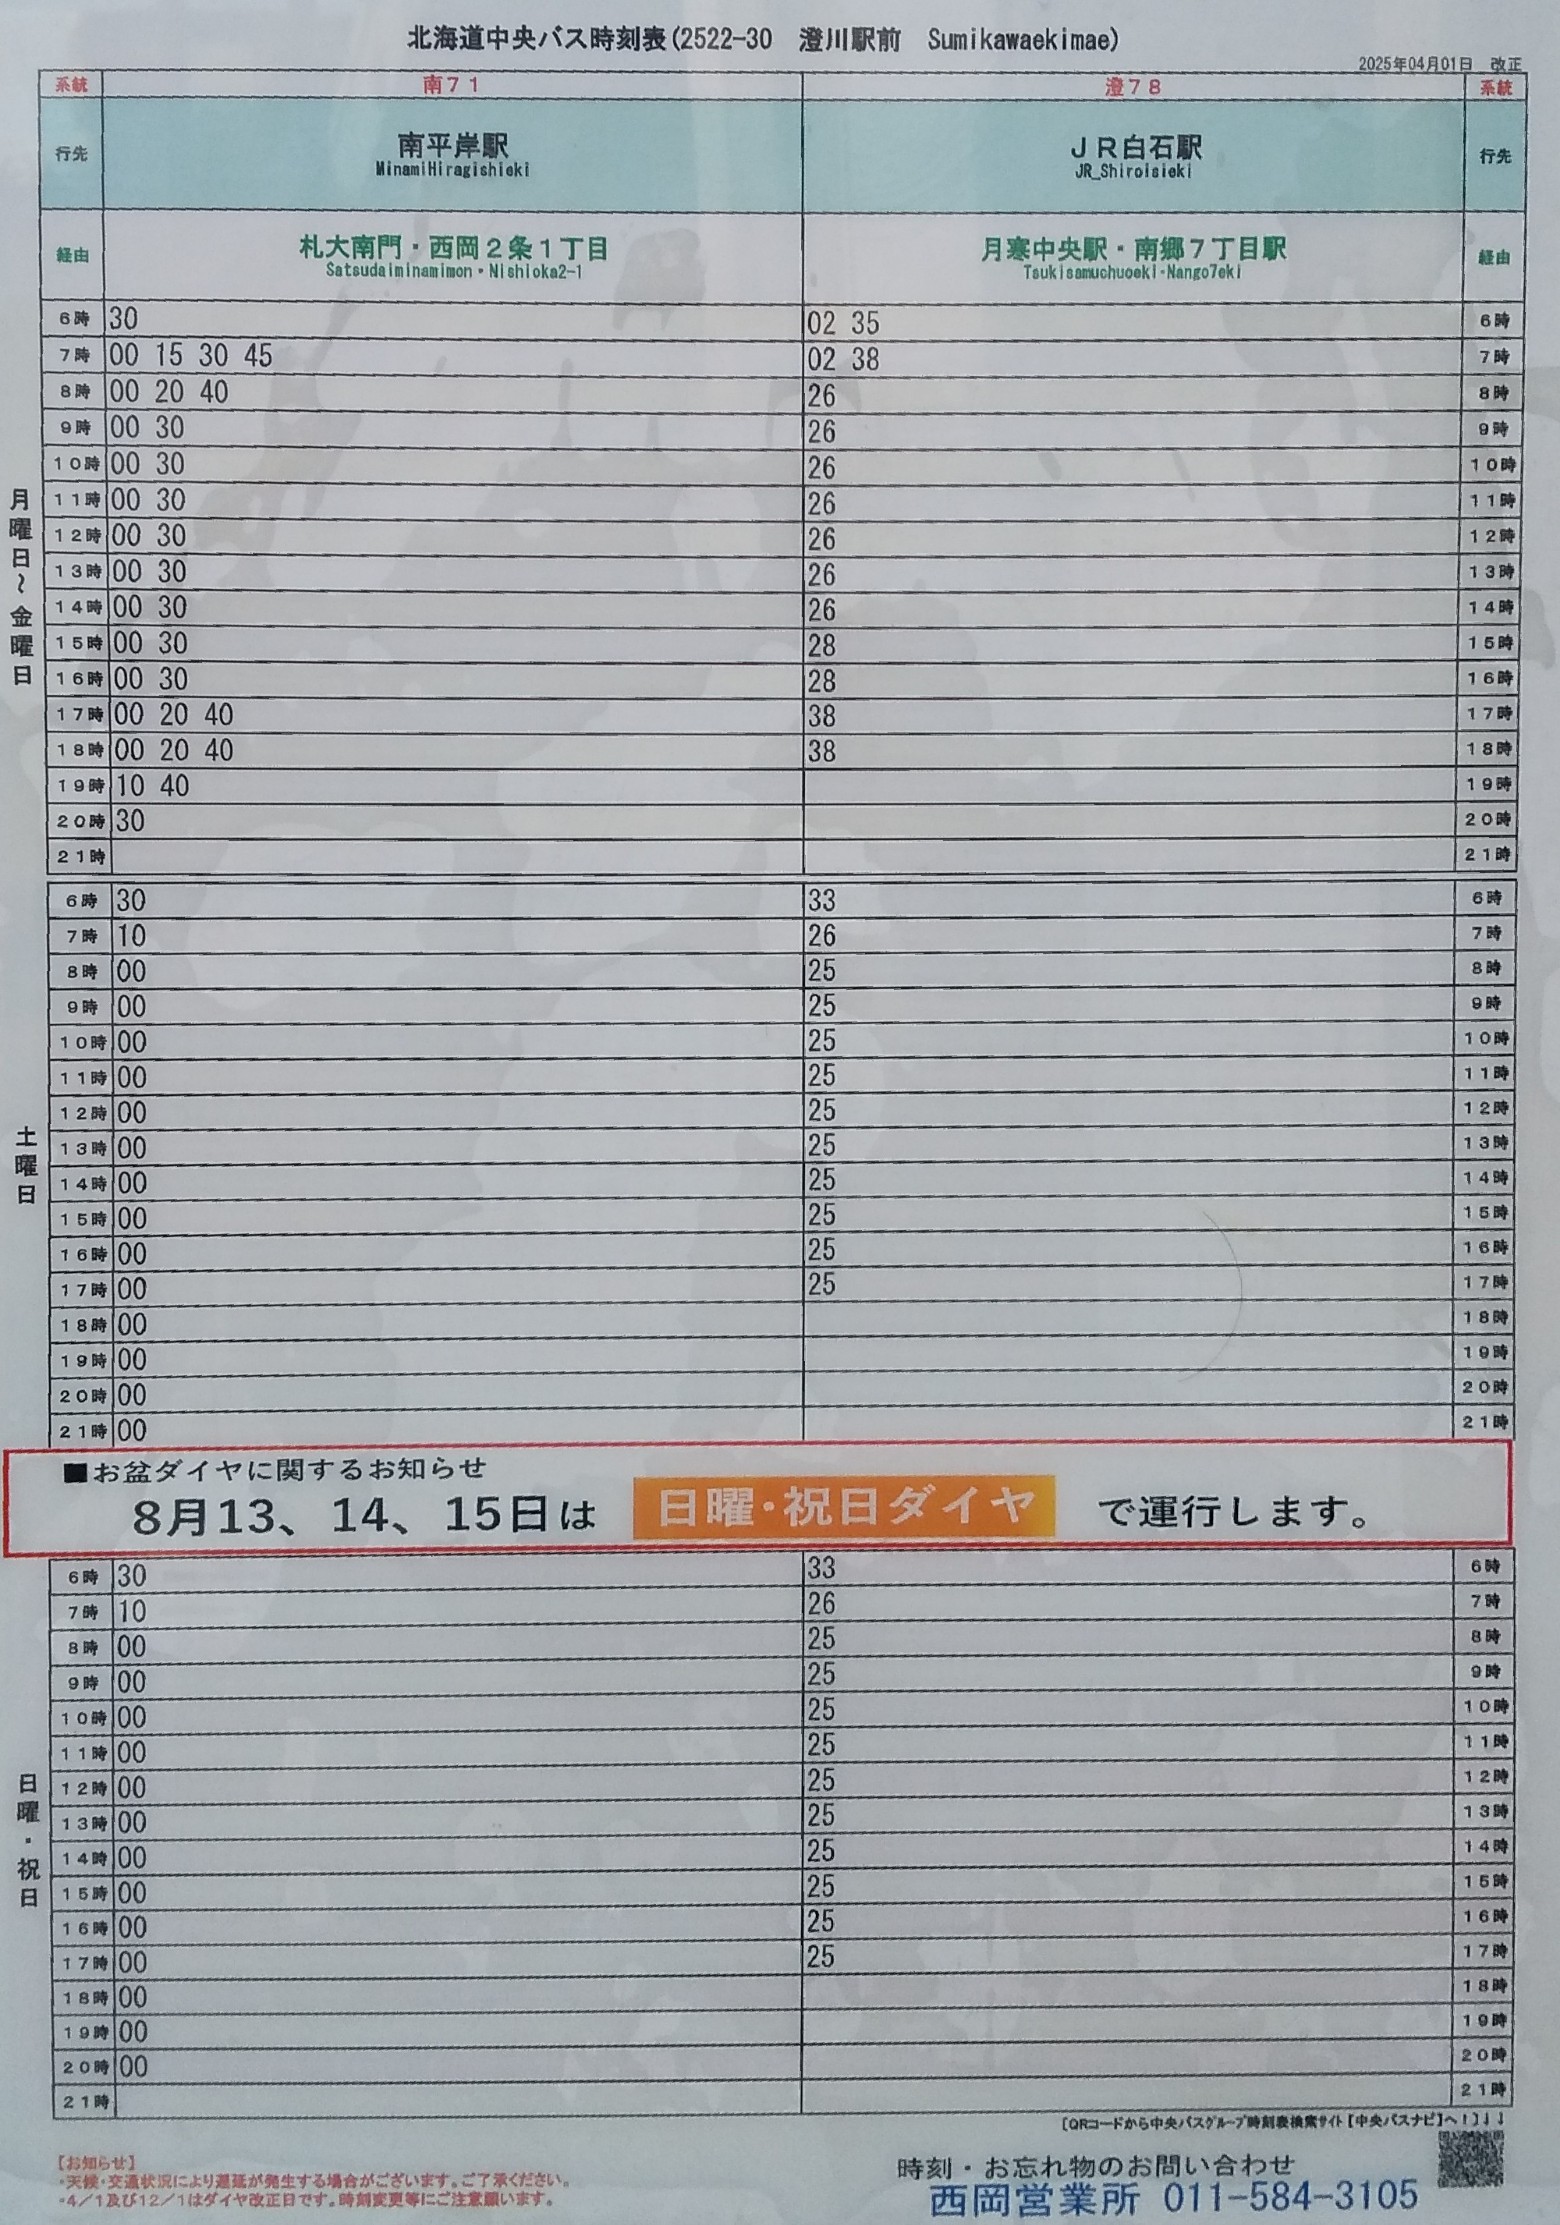 北海道中央バス時刻表(2522-30　澄川駅前　Sumikawaekimae)
2025年04月01日　改正
系統 南７１ 澄７８ 系統
行先 南平岸駅 ＪＲ白石駅 行先
MinamiHiragishieki JR_Shiroisieki
経由 札大南門・西岡２条１丁目 月寒中央駅・南郷７丁目駅 経由
Satsudaiminamimon・Nishioka2-1 Tsukisamuchuoeki・Nango7eki
月曜日～金曜日
６時 30 02 35 ６時
７時 00 15 30 45 02 38 ７時
８時 00 20 40 26 ８時
９時 00 30 26 ９時
１０時 00 30 26 １０時
１１時 00 30 26 １１時
１２時 00 30 26 １２時
１３時 00 30 26 １３時
１４時 00 30 26 １４時
１５時 00 30 28 １５時
１６時 00 30 28 １６時
１７時 00 20 40 38 １７時
１８時 00 20 40 38 １８時
１９時 10 40 １９時
２０時 30 ２０時
２１時 ２１時
土曜日
６時 30 33 ６時
７時 10 26 ７時
８時 00 25 ８時
９時 00 25 ９時
１０時 00 25 １０時
１１時 00 25 １１時
１２時 00 25 １２時
１３時 00 25 １３時
１４時 00 25 １４時
１５時 00 25 １５時
１６時 00 25 １６時
１７時 00 25 １７時
１８時 00 １８時
１９時 00 １９時
２０時 00 ２０時
２１時 00 ２１時
■お盆ダイヤに関するお知らせ
8月13、14、15日は 日曜・祝日ダイヤ で運行します。
日曜・祝日
６時 30 33 ６時
７時 10 26 ７時
８時 00 25 ８時
９時 00 25 ９時
１０時 00 25 １０時
１１時 00 25 １１時
１２時 00 25 １２時
１３時 00 25 １３時
１４時 00 25 １４時
１５時 00 25 １５時
１６時 00 25 １６時
１７時 00 25 １７時
１８時 00 １８時
１９時 00 １９時
２０時 00 ２０時
２１時 ２１時
[QRコードから中央バスグループ時刻表検索サイト【中央バスナビ】へ！]↓↓
【お知らせ】
・天候・交通状況により遅延が発生する場合がございます。ご了承ください。
・4／1及び12／1はダイヤ改正日です。時刻変更等にご注意願います。
時刻・お忘れ物のお問い合わせ
西岡営業所 011-584-3105